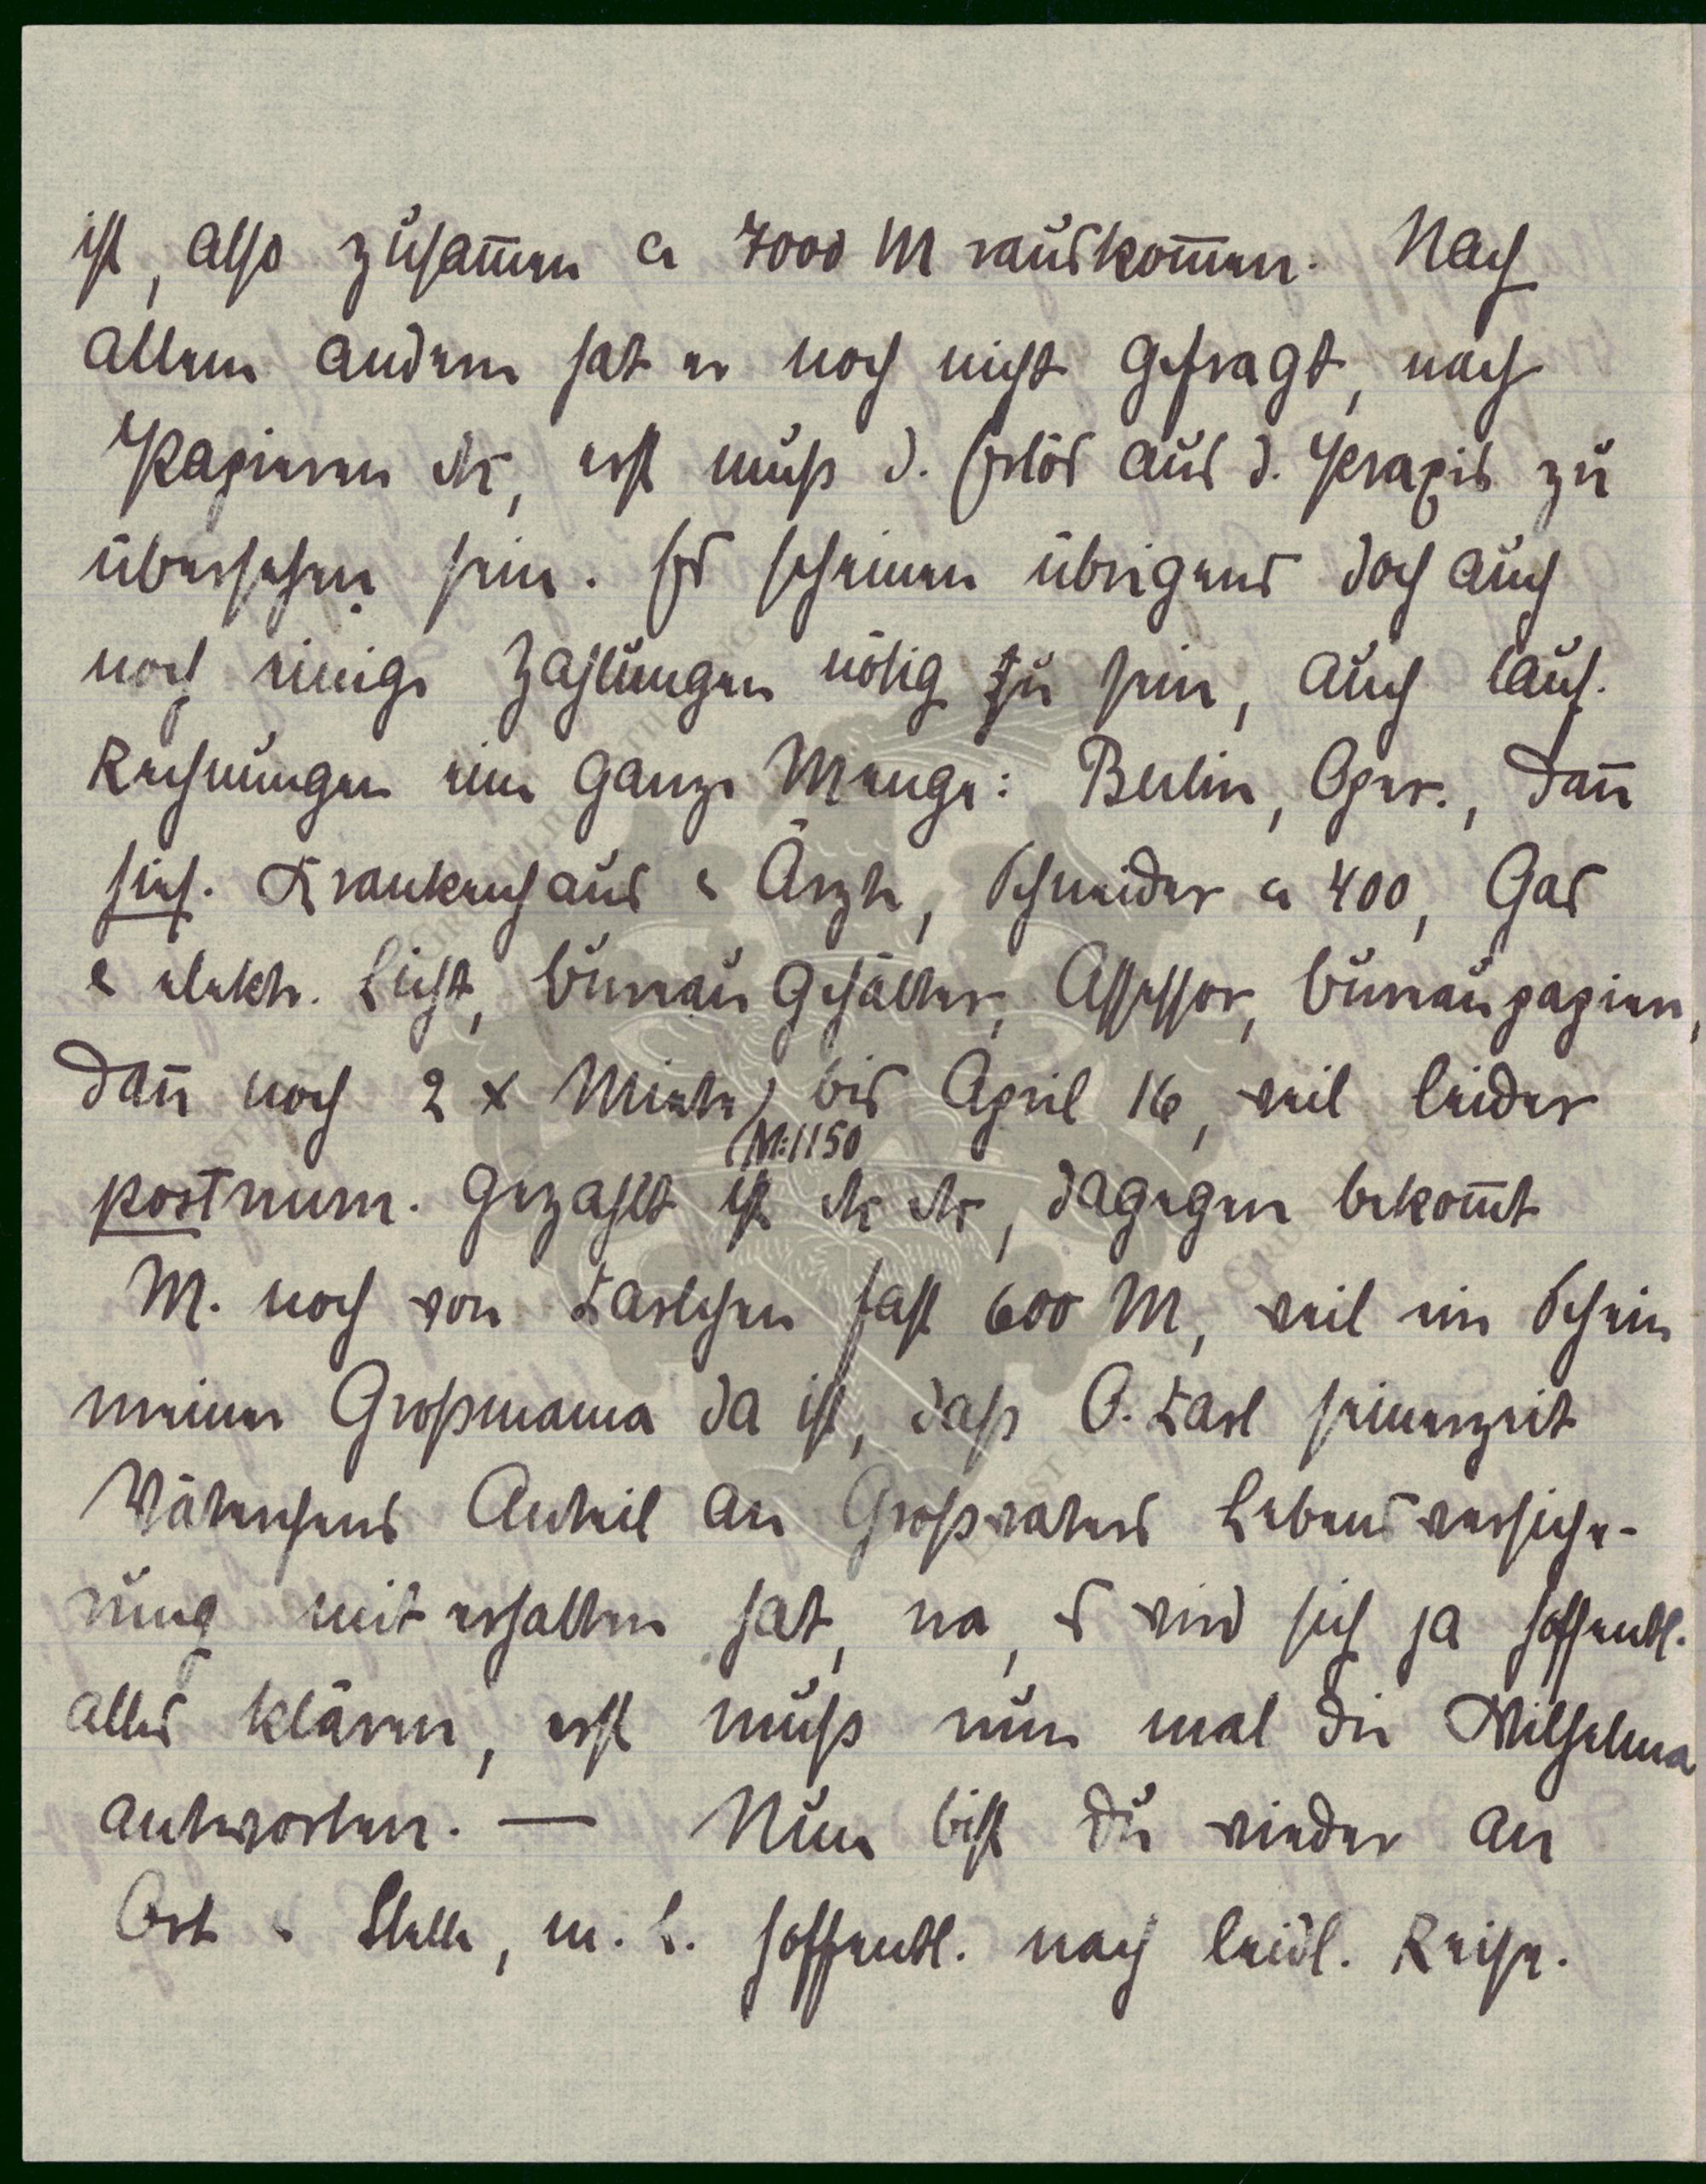 ist, also zusam̅en ca 7000 M rauskom̅en. Nach
allem andern hat er noch nicht gefragt, nach
Papieren etc, erst muß d. Erlös aus d. Praxis zu
übersehen sein. Es scheinen übrigens doch auch
noch einige Zahlungen nötig zu sein, auch lauf.
Rechnungen eine ganze Menge: Berlin, Oper., dan̅
hies. Krankenhaus & Ärzte, Schneider ca 400, Gas
& elektr. Licht, Büreau Gehälter, Assessor, Büreaupapiere,
dan̅ noch 2 x Miete, bis April 16, weil leider
(M: 1150
postnum. gezahlt ist etc etc, dagegen bekom̅t
M. noch von Karlchen fast 600 M, weil ein Schein
meiner Großmama da ist, daß O. Karl seinerzeit
Väterchens Anteil an Großvaters Lebensversiche-
rung mit erhalten hat, na, es wird sich ja hoffentl.
alles klären, erst muß nun mal die Wilhelma
antworten. — Nun bist Du wieder an
Ort & Stelle, m. L. hoffentl. nach leidl. Reise.